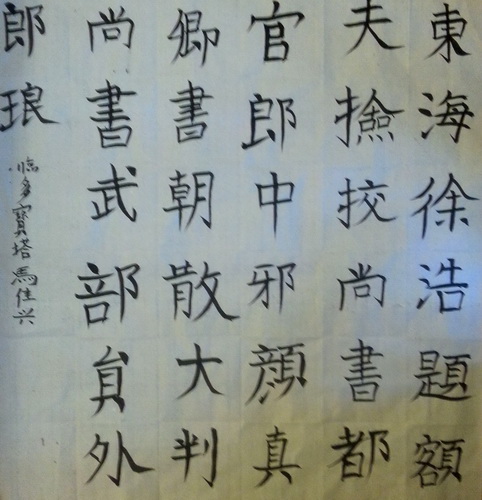 東海徐浩題額
夫撿挍尚書都
官郎中邪顔真
卿書朝散大判
尚書武部貟外
郎琅
臨多寶塔馬佳兴